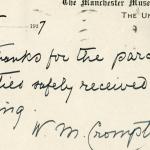 The Manchester Muse
The Un
1927
anks for the parc
ties safely received
ing.
W. M. Crompt